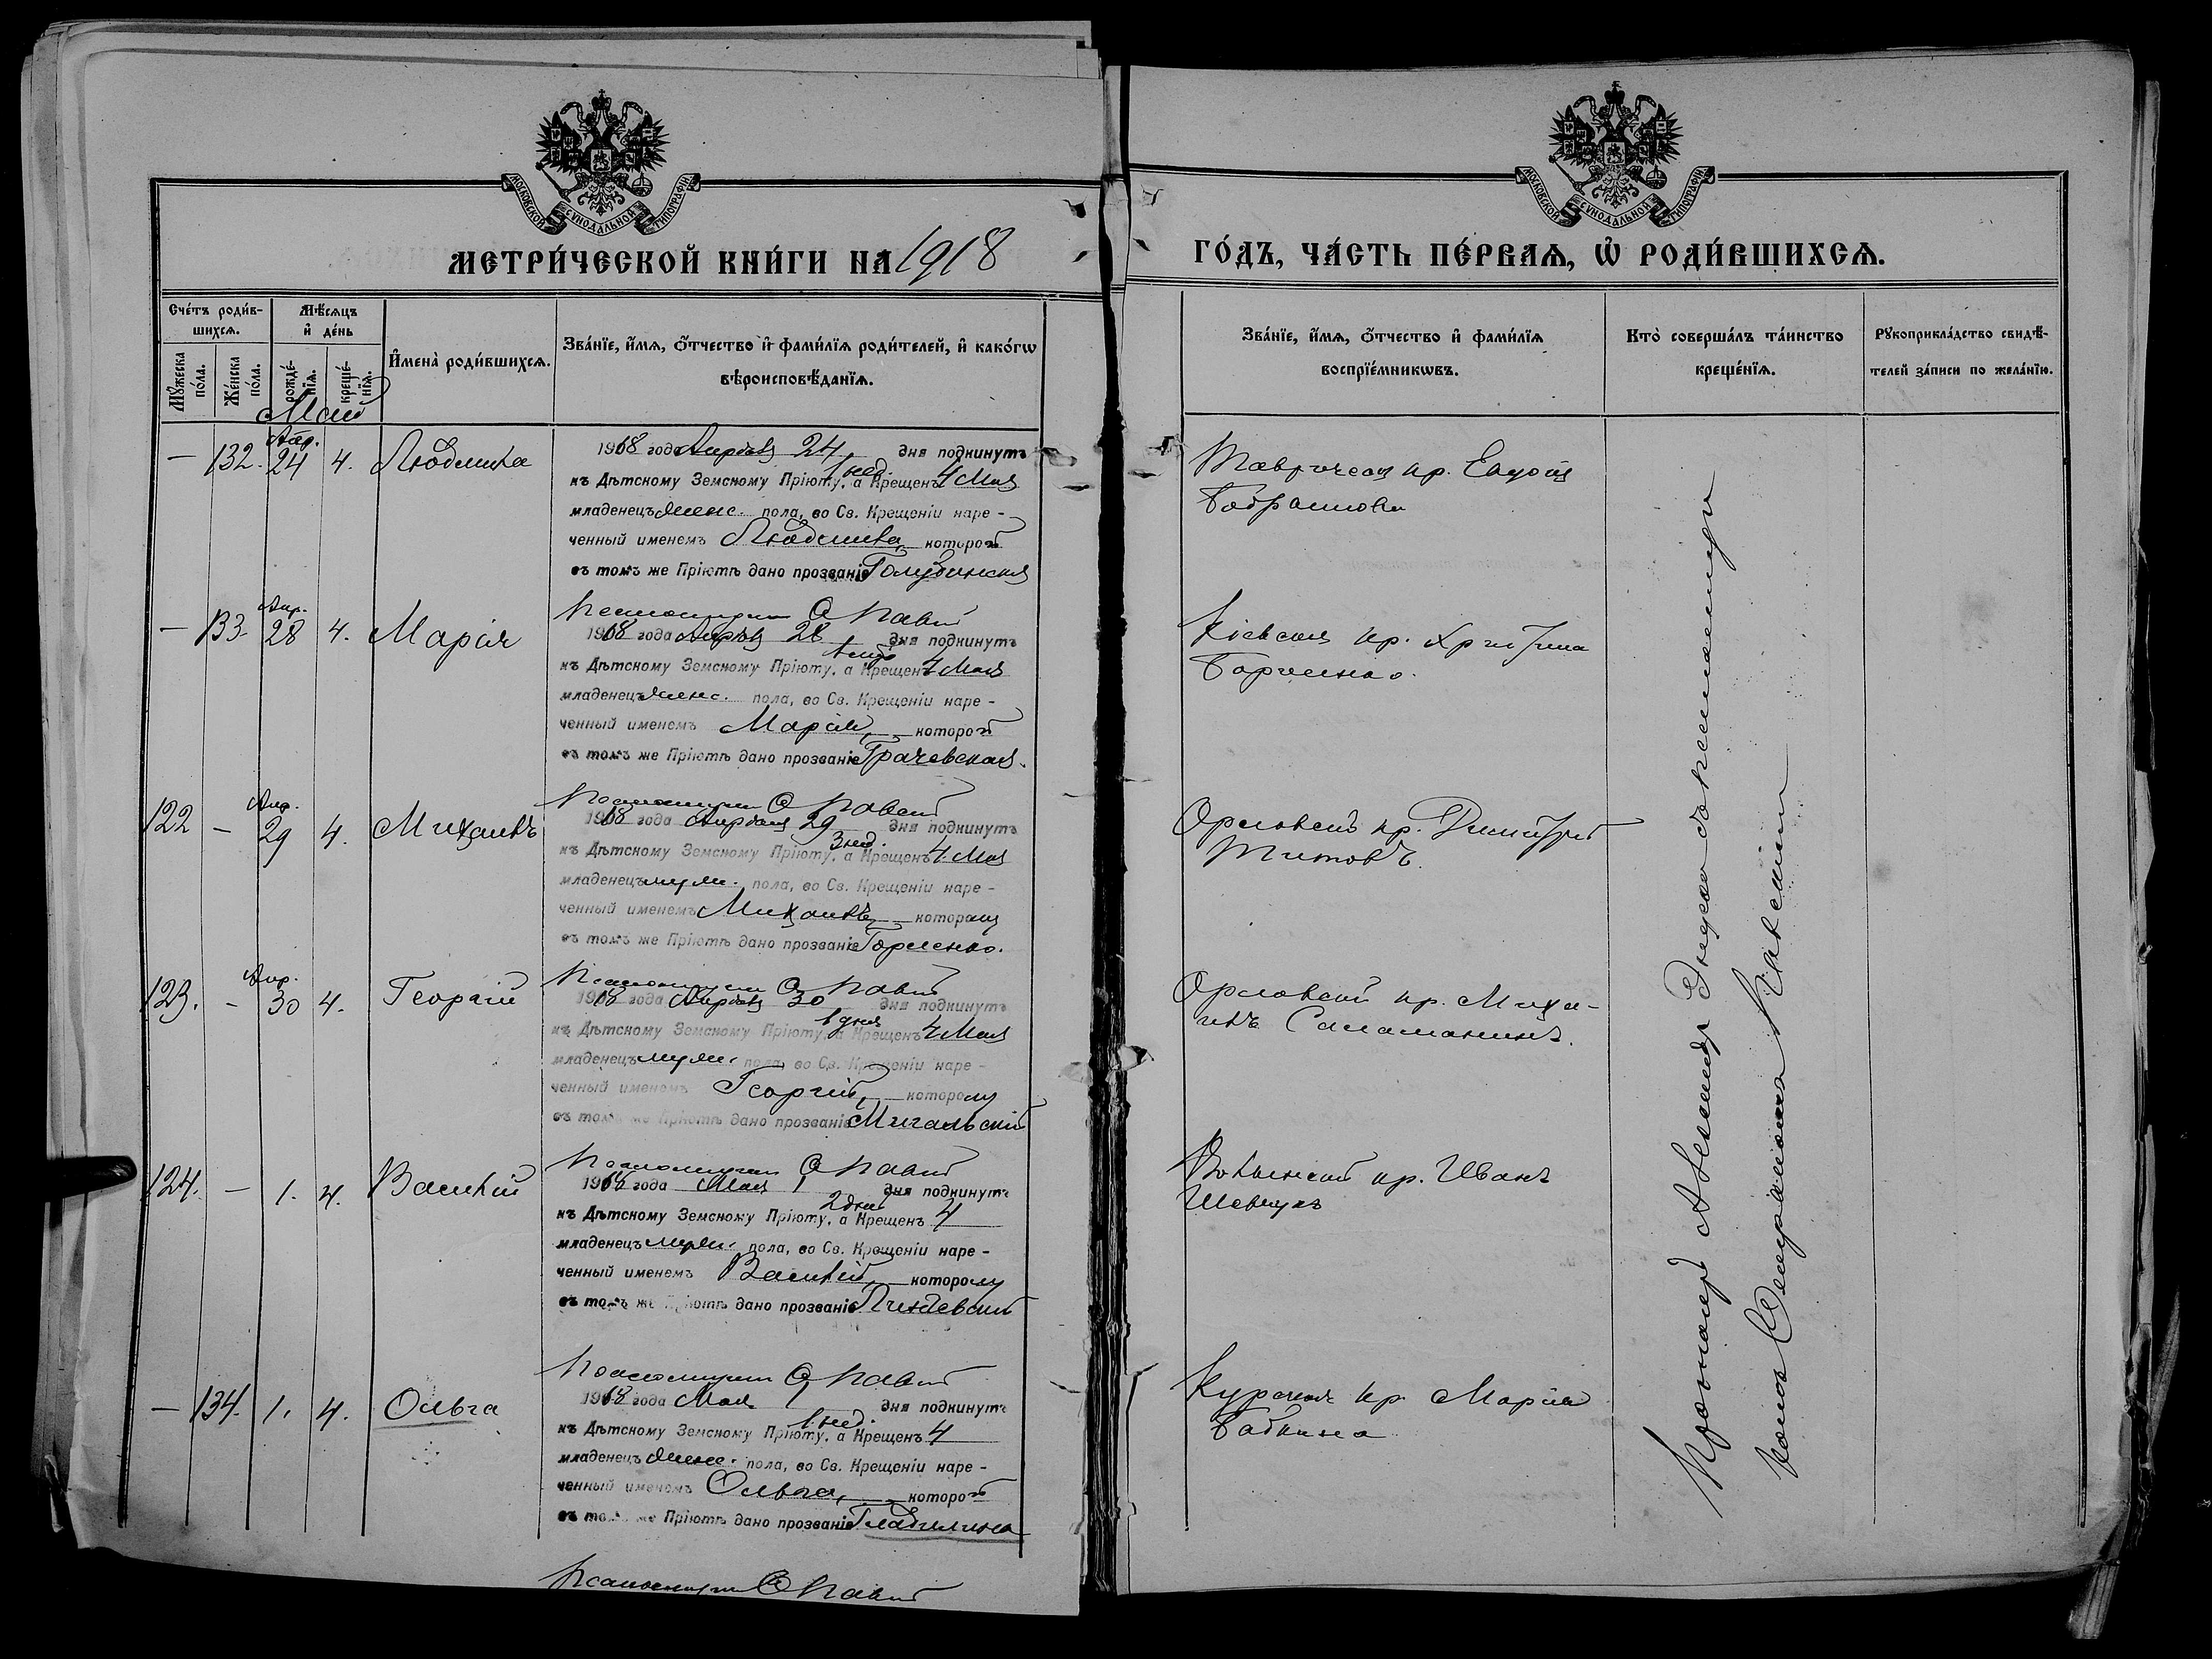 МОСКОВСКОЙ СѴНОДАЛЬНОЙ ТИПОГРАФІИ
МЕТРИ́ЧЕСКОЙ КНИ́ГИ НА 1918
Сче́тъ роди́в-
шихсѧ.
Мꙋ́жеска
по́ла.
Же́нска
по́ла.
Мѣ́сѧцъ
и҆ де́нь
рожде́-
нїѧ.
креще́-
нїѧ.
И҆мена̀ роди́вшихсѧ.
Зва́нїе, и҆́мѧ, ѻ҆́тчество и҆ фамі́лїѧ роди́телей, и҆ како́гѡ
вѣроисповѣ́данїѧ.
Май
— 132. Апр. 24 4. Людмила
1918 года Апрѣля 24 дня подкинутъ
1 нед.
къ Дѣтскому Земскому Пріюту, а Крещенъ 4 Мая
младенецъ женс. пола, во Св. Крещеніи наре-
ченный именемъ Людмила, которой
въ томъ же Пріютѣ дано прозваніе Голубинская
— 133. Апр. 28 4. Марія
1918 года Апрѣля 28 дня подкинутъ
къ Дѣтскому Земскому Пріюту, а Крещенъ 4 Мая
младенецъ женс. пола, во Св. Крещеніи наре-
ченный именемъ Марія, которой
въ томъ же Пріютѣ дано прозваніе Грачевская.
122 — Апр. 29 4. Михаилъ
1918 года Апрѣля 29 дня подкинутъ
3 нед.
къ Дѣтскому Земскому Пріюту, а Крещенъ 4. Мая
младенецъ муж. пола, во Св. Крещеніи наре-
ченный именемъ Михаилъ, которому
въ томъ же Пріютѣ дано прозваніе
123. — Апр. 30 4. Георгій
1918 года Апрѣля 30 дня подкинутъ
1 дня
къ Дѣтскому Земскому Пріюту, а Крещенъ 4 Мая
младенецъ муж. пола, во Св. Крещеніи наре-
ченный именемъ Георгій, которому
въ томъ же Пріютѣ дано прозваніе Мигальскій
124. — 1. 4. Василій
1918 года Мая 1 дня подкинутъ
2 дней
къ Дѣтскому Земскому Пріюту, а Крещенъ 4
младенецъ муж. пола, во Св. Крещеніи наре-
ченный именемъ Василій, которому
въ томъ же Пріютѣ дано прозваніе
— 134. 1. 4. Ольга
1918 года Мая 1 дня подкинутъ
1 нед.
къ Дѣтскому Земскому Пріюту, а Крещенъ 4
младенецъ женс. пола, во Св. Крещеніи наре-
ченный именемъ Ольга, которой
въ томъ же Пріютѣ дано прозваніе Гладилина
МОСКОВСКОЙ СѴНОДАЛЬНОЙ ТИПОГРАФІИ
ГО́ДЪ, ЧА́СТЬ ПЕ́РВАѦ, Ѽ РОДИ́ВШИХСѦ.
Зва́нїе, и҆́мѧ, ѻ҆́тчество и҆ фамі́лїѧ
воспрїе́мникѡвъ.
Кто̀ соверша́лъ та́инство
креще́нїѧ.
Рꙋкоприкла́дство свидѣ́-
телей за́писи по жела́нїю.
пр.
Кіевская пр. Христина
Борченко.
Орловскій пр. Димитрій
Титовъ.
Орловскій пр. Миха-
илъ Саламакинъ.
Волынскій пр. Иванъ
Шевчукъ
Курская пр. Марія
Бабкина
Протоіерей Александр